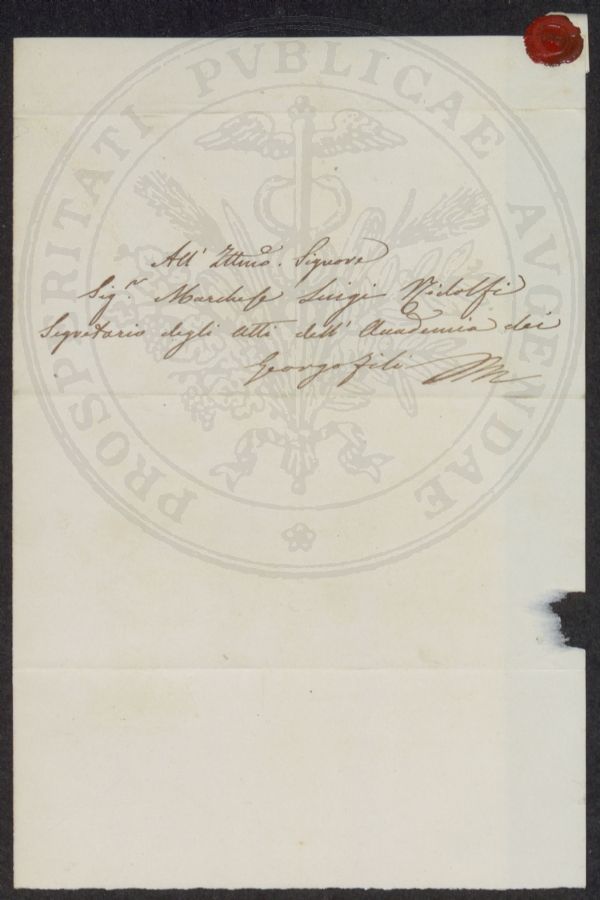 PROSPERITATI PVBLICAE AVGENDAE
All' Illmo. Signore
Sig.r Marchese Luigi Ridolfi
Segretario degli Atti dell' Accademia dei
Georgofili